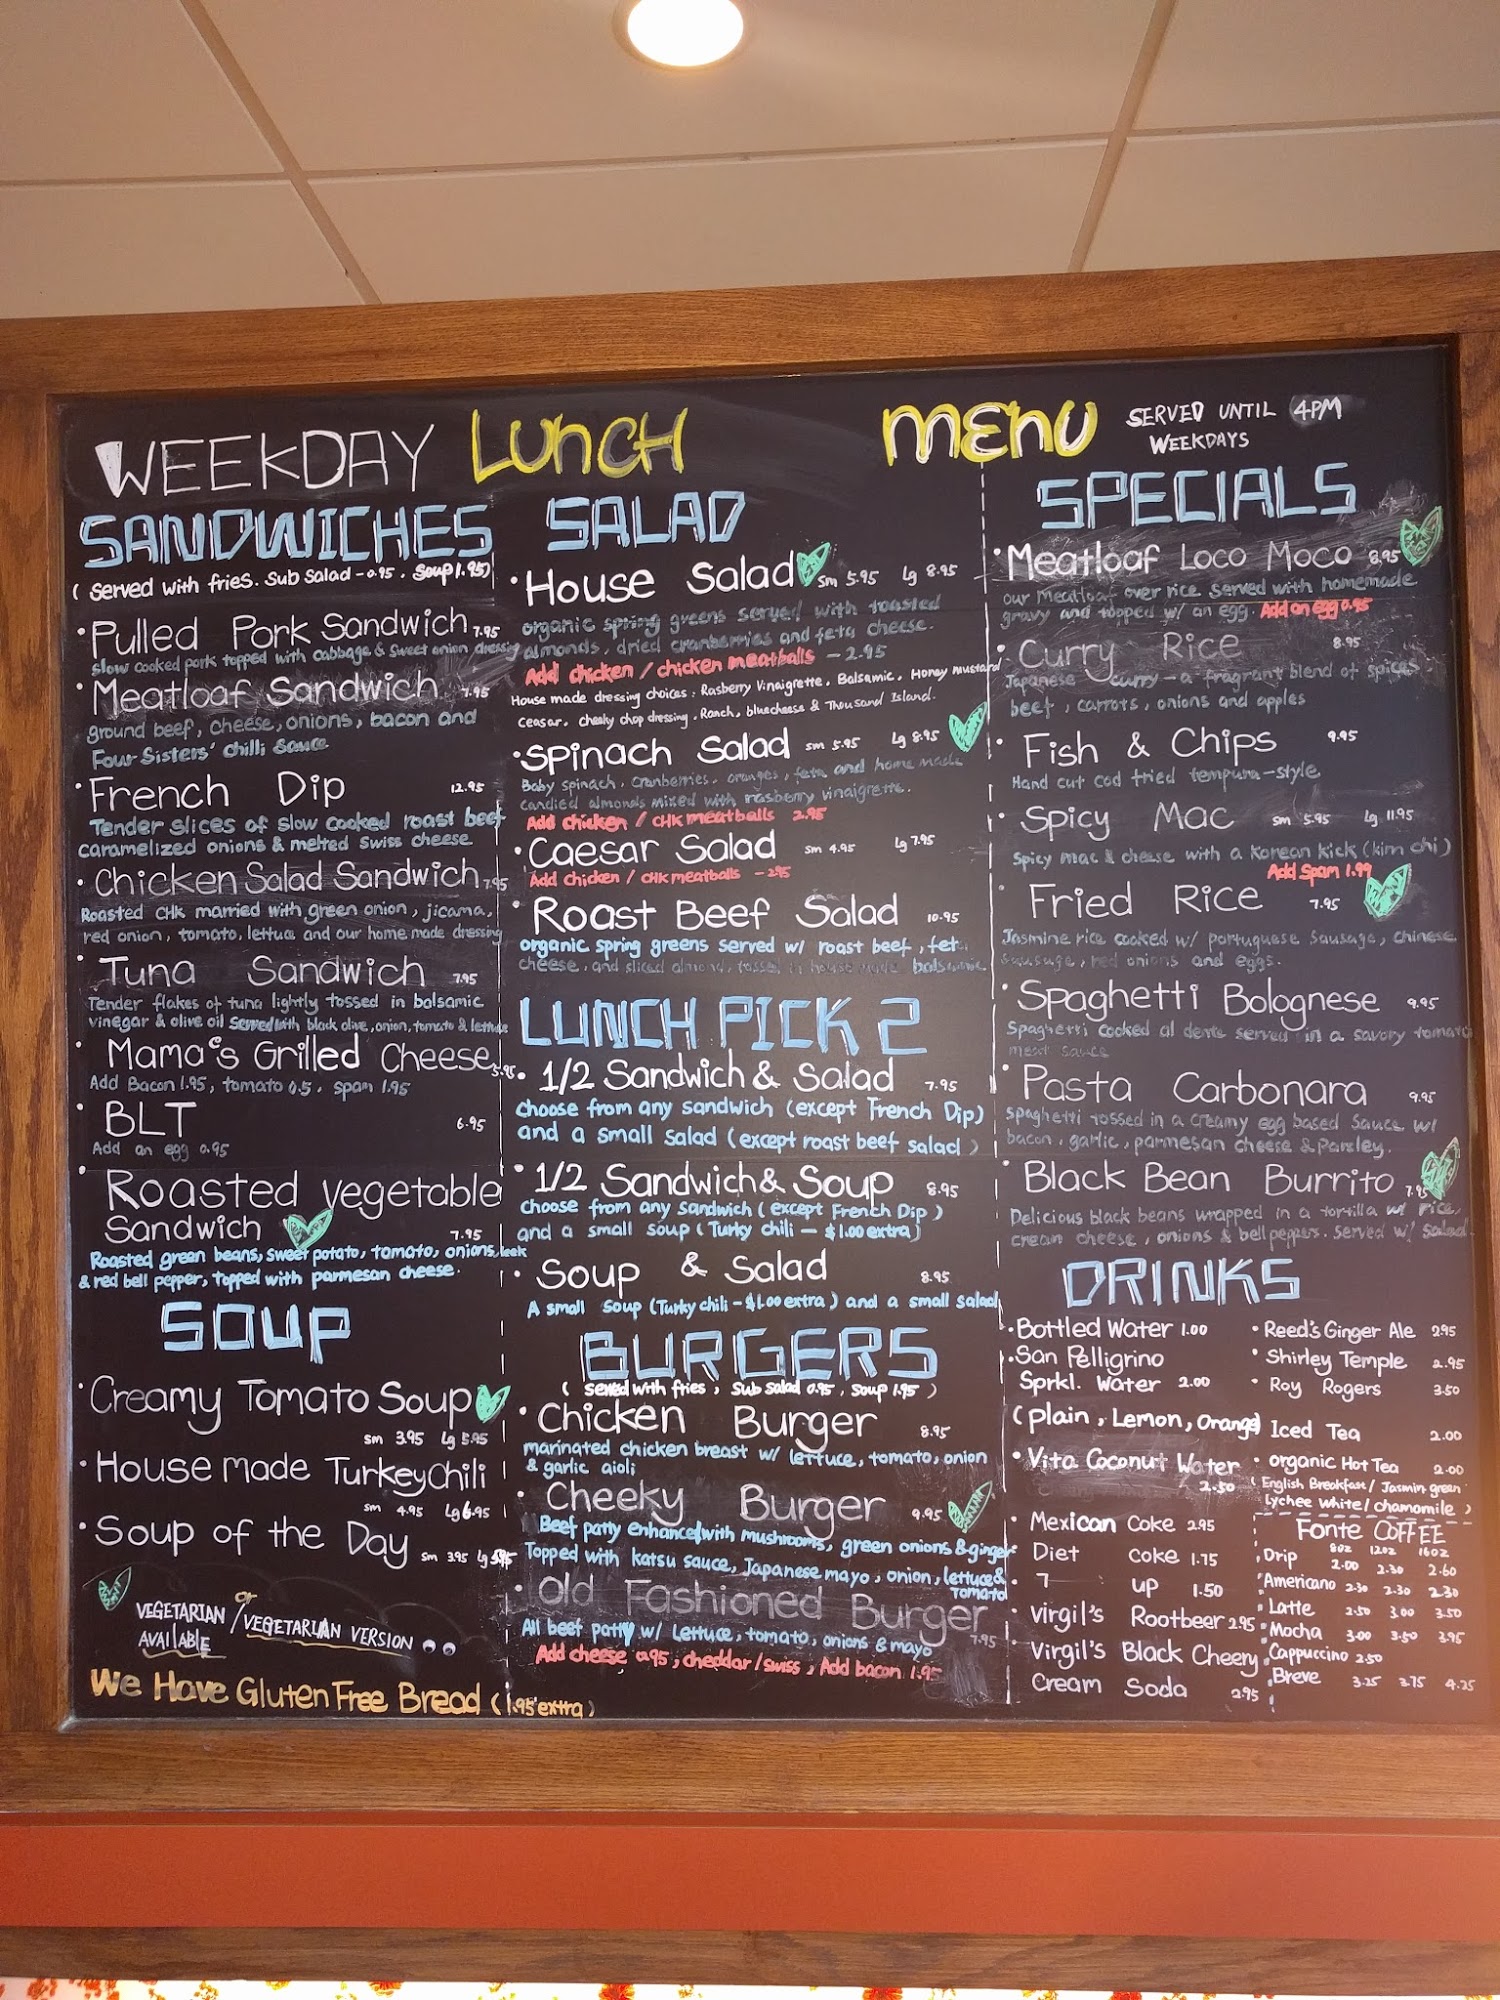 WEEKDAY LUNCH MENU
SERVED UNTIL 4PM
WEEKDAYS
SANDWICHES
( Served with fries. Sub Salad - 0.95 . Soup 1.95)
• Pulled Pork Sandwich 7.95
Slow cooked pork topped with cabbage & sweet onion dressing
• Meatloaf Sandwich 7.95
ground beef, cheese, onions, bacon and
Four Sisters' chilli sauce
• French Dip 12.95
Tender slices of slow cooked roast beef
caramelized onions & melted Swiss cheese
• Chicken Salad Sandwich 7.95
Roasted CHK married with green onion, jicama,
red onion, tomato, lettuce and our home made dressing
• Tuna Sandwich 7.95
Tender flakes of tuna lightly tossed in balsamic
vinegar & olive oil served with black olive, onion, tomato & lettuce
• Mama's Grilled Cheese 5.95
Add Bacon 1.95, tomato 0.5, spam 1.95
• BLT 6.95
Add an egg 0.95
• Roasted vegetable
Sandwich 7.95
Roasted green beans, sweet potato, tomato, onions, leek
& red bell pepper, topped with parmesan cheese.
SOUP
• Creamy Tomato Soup
sm 3.95 Lg 5.95
• House made Turkey Chili
sm 4.95 Lg 6.95
• Soup of the Day sm 3.95 Lg 5.95
VEGETARIAN or / VEGETARIAN VERSION
AVAILABLE
We Have Gluten Free Bread (1.95 extra)
SALAD
• House Salad sm 5.95 Lg 8.95
organic spring greens served with toasted
almonds, dried cranberries and feta cheese.
Add chicken / chicken meatballs - 2.95
House made dressing choices : Rasberry Vinaigrette, Balsamic, Honey mustard
Ceasar, cheeky chop dressing, Ranch, bluecheese & Thousand Island.
• Spinach Salad sm 5.95 Lg 8.95
Baby spinach, cranberries, oranges, feta and home made
candied almonds mixed with rasberry vinaigrette.
Add chicken / CHK meatballs 2.95
• Caesar Salad sm 4.95 Lg 7.95
Add chicken / CHK meatballs - 2.95
• Roast Beef Salad 10.95
organic spring greens served w/ roast beef, feta
cheese, and sliced almond, tossed in house made balsamic
LUNCH PICK 2
• 1/2 Sandwich & Salad 7.95
choose from any sandwich (except French Dip)
and a small salad (except roast beef salad)
• 1/2 Sandwich & Soup 8.95
choose from any sandwich (except French Dip)
and a small soup (Turky chili - $1.00 extra)
• Soup & Salad 8.95
A small soup (Turky chili - $1.00 extra) and a small salad
BURGERS
( served with fries, Sub salad 0.95, soup 1.95 )
• Chicken Burger 8.95
marinated chicken breast w/ lettuce, tomato, onion
& garlic aioli
• Cheeky Burger 9.95
Beef patty enhanced with mushrooms, green onions & ginger
Topped with katsu sauce, Japanese mayo, onion, lettuce &
tomato
• Old Fashioned Burger 7.95
All beef patty w/ Lettuce, tomato, onions & mayo
Add cheese 0.95, cheddar/swiss, Add bacon 1.95
SPECIALS
• Meatloaf Loco Moco 8.95
our Meatloaf over rice served with homemade
gravy and topped w/ an egg. Add an egg 0.95
• Curry Rice 8.95
Japanese curry - a fragrant blend of spices
beef, carrots, onions and apples
• Fish & Chips 9.95
Hand cut cod fried tempura-style
• Spicy Mac sm 5.95 Lg 11.95
Spicy mac & cheese with a Korean kick (kim chi)
Add Spam 1.99
• Fried Rice 7.95
Jasmine rice cooked w/ portuguese sausage, chinese
sausage, red onions and eggs.
• Spaghetti Bolognese 9.95
Spaghetti cooked al dente served in a savory tomato
meat sauce
• Pasta Carbonara 9.95
Spaghetti tossed in a creamy egg based sauce w/
bacon, garlic, parmesan cheese & Parsley.
• Black Bean Burrito 7.95
Delicious black beans wrapped in a tortilla w/ rice,
cream cheese, onions & bell peppers. Served w/ Salad
DRINKS
• Bottled Water 1.00
• San Pelligrino
Sprkl. Water 2.00
(plain, Lemon, Orange)
• Vita Coconut Water
2.50
• Mexican Coke 2.95
• Diet Coke 1.75
• 7 up 1.50
• Virgil's Rootbeer 2.95
• Virgil's Black Cheery
Cream Soda 2.95
• Reed's Ginger Ale 2.95
• Shirley Temple 2.95
• Roy Rogers 3.50
• Iced Tea 2.00
• organic Hot Tea 2.00
( English Breakfast / Jasmin green
Lychee white / chamomile )
Fonte COFFEE
8oz 12oz 16oz
• Drip 2.00 2.30 2.60
• Americano 2.30 2.30 2.30
• Latte 2.50 3.00 3.50
• Mocha 3.00 3.50 3.95
• Cappuccino 2.50
• Breve 3.25 3.75 4.25